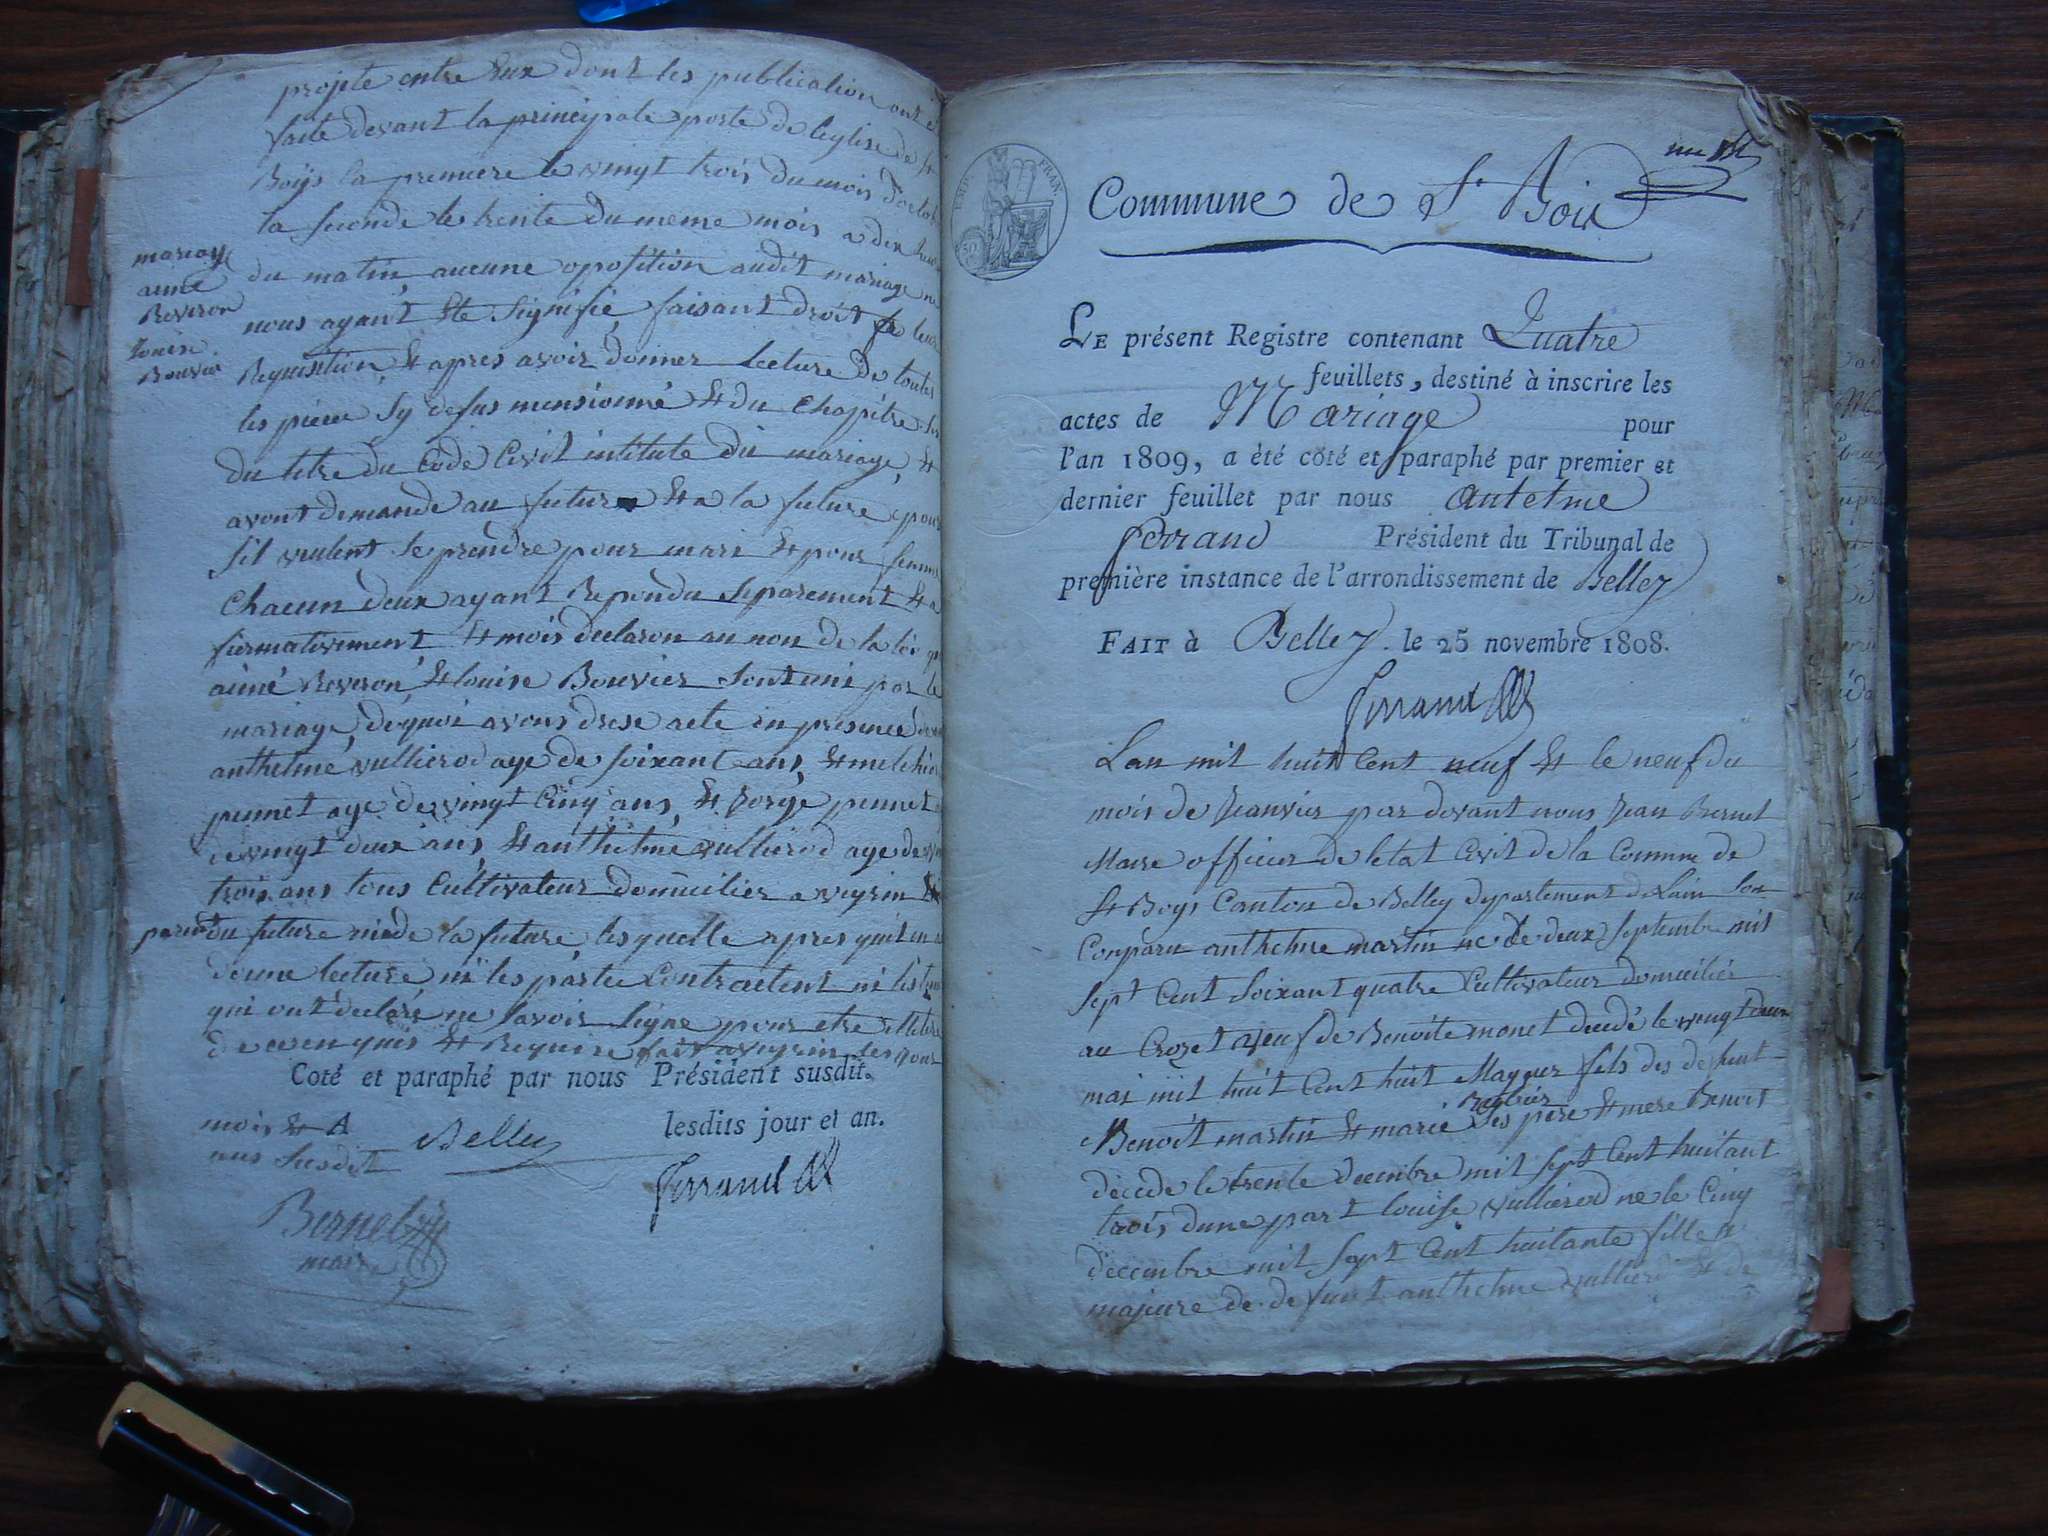 projete entre Eux dont les publication ont
faite devant la principale porte de leglise de St
Boijs la premiere le vingt trois du mois D'octob
la seconde le trente Du meme mois a dix heu
du matin aucune oposition audit mariage ne
nous ayant Ete signifie faisant droit a leur
Requisition Et apres avoir donner lecture De toutes
les piece sy desus mensionné Et du Chapitre
du titre du Code Civil intitule du mariage, Et
avont demande au future Et a la future, pour
s'il veulent se prendre pour mari Et pour femme
Chacun deux ayant Repondu separement Et a
firmativement Et mois declaron au non de la loi
aimé Reveron Et louise Bouvier sont uni par le
mariage, de quoi avons drese acte en presence de
anthelme vullierod age de soixant ans, Et melchior
pennet age de vingt Cinq ans, Et Jorge pennet
de vingt deux ans Et anthelme vullierod age de
trois ans tous Cultivateur domicilier a veyrin
parent du future ni de la future, lesquelle apres quil en
donne lecture ni les partie Contractent ni les
qui ont declaré ne savoir signe pour etre
de ce enquis Et Requi fait a veyrin les jour
mariage
aimé
Reveron
louise
Bouvier
Coté et paraphé par nous Président susdit.
mois Et A
nus susdit
Belley
lesdits jour et an.
Ferrand
Bernet
maire
Commune de St Bois
LE présent Registre contenant Quatre
feuillets, destiné à inscrire les
actes de Mariage pour
l'an 1809, a été coté et paraphé par premier et
dernier feuillet par nous Antelme
Ferrand Président du Tribunal de
première instance de l'arrondissement de Belley
FAIT à Belley. le 25 novembre 1808.
Ferrand
Lan mil huit Cent neuf Et le neuf du
mois de Jeanvier par devant nous Jean Bernet
Maire officier de letat Civil de la Comune de
St Boys Canton de Belley departement de Lain
Conparu anthelme martin ne le deux septembre mil
sept Cent soixant quatre Cultivateur domicilié
au Crozet veuf de Benoite monet decedé le vingt deux
mai mil huit Cent huit Mageur fils des defunt
Benoit martin Et marie ses pere Et mere Benoit
decede le trente decembre mil sept Cent huitant
trois dune part louise vullierod ne le Cinq
decembre mil sept Cent huitante fille
majeure de defunt anthelme vullierod Et de